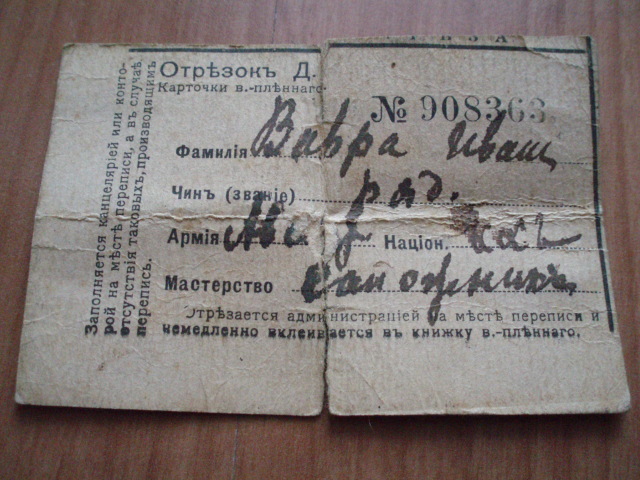 Заполняется канцеляріей или конто-
рой на мѣстѣ переписи, а въ случаѣ
отсутствія таковыхъ, производящимъ
перепись.
Отрѣзокъ Д.
Карточки в.-плѣннаго
№ 908363
Фамилія Вавра Иванъ
Чинъ (званіе) ряд.
Армія
Націон.
Мастерство сапожникъ
Отрѣзается администраціей на мѣстѣ переписи и
немедленно вклеивается въ книжку в.-плѣннаго.